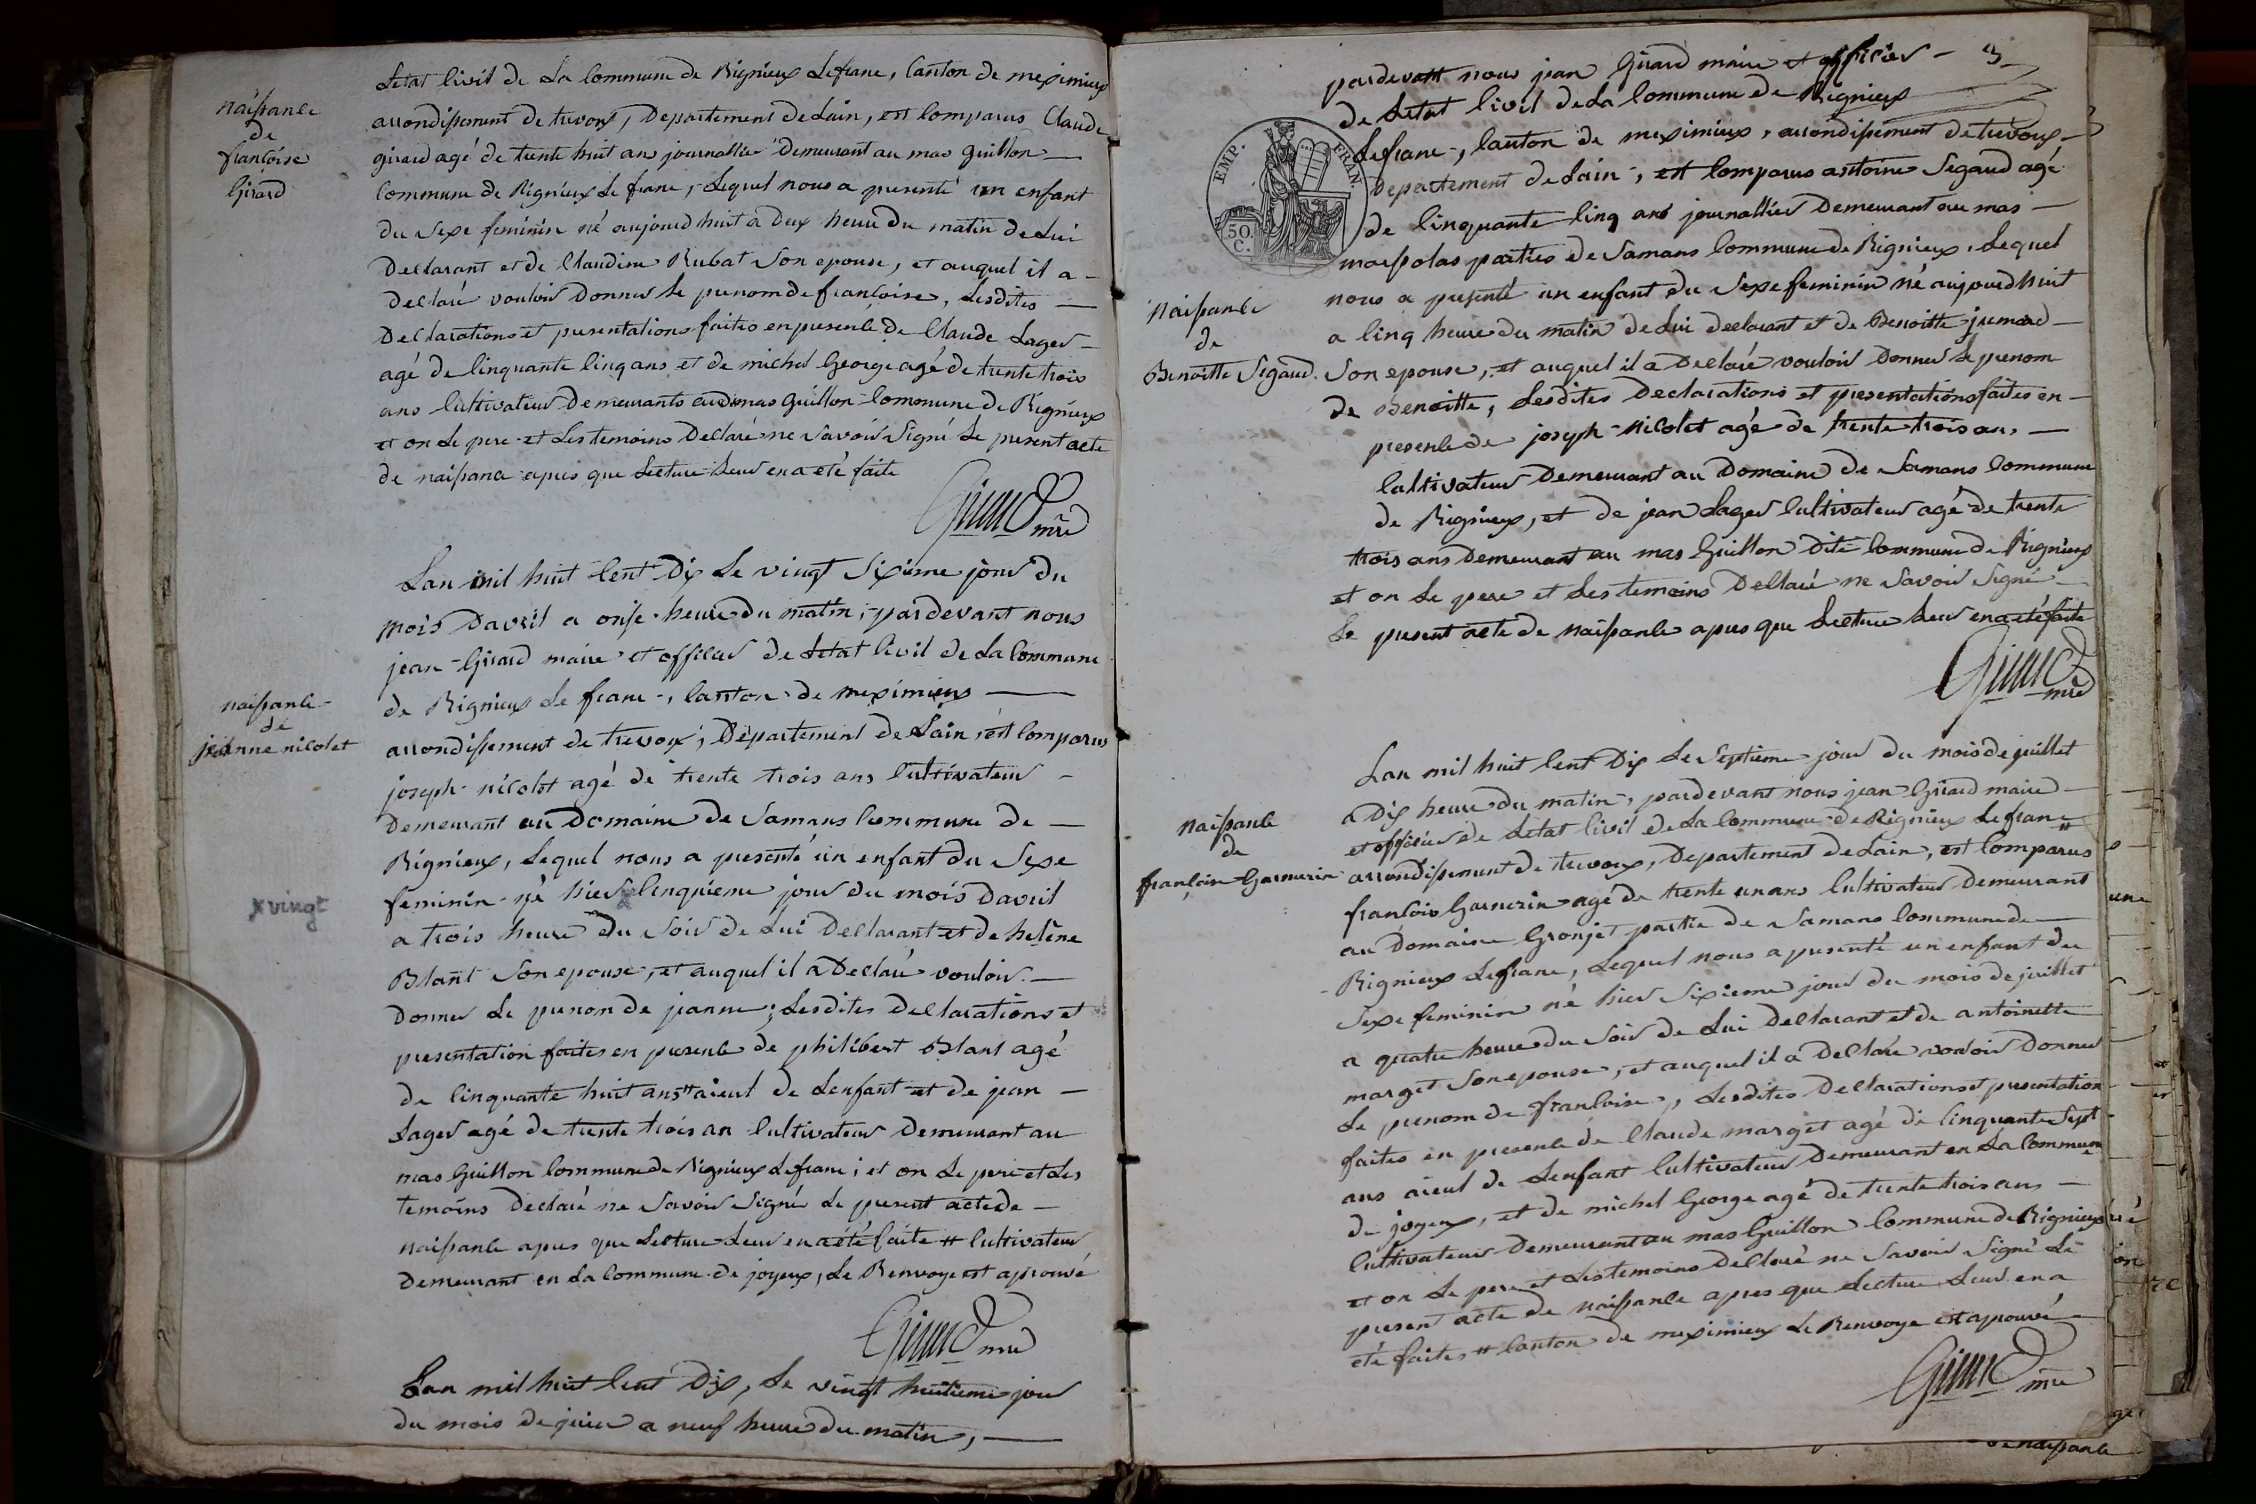 Letat Civil de La Commune de Rignieux Lefranc, Canton de meximieux
naissance
de
francoise
Girard
arrondissement de trevoux, Departement de Lain, est Comparus Claude
girard agé de trente huit an journallier Demeurant au mas guillon
Commune de Rignieux Le franc, Lequel nous a presenté un enfant
Du Sexe feminin né aujourdhuit à Deux heure Du matin de Lui
Declarant et de Claudine Rubat Son epouse, et auquel il a
Declaré vouloir Donner Le prenom de francoise, Lesdites
Declarations et presentations faites en presence De Claude Lager
agé de Cinquante Cinq ans et de michel George agé de trente trois
ans Cultivateur Demeurants au mas Guillon Commune de Rignieux
et on Le pere et Les temoins Declaré ne Savoir Signé Le present acte
de naissance apres que Lecture Leur en a eté faite
Girard mre
Lan mil huit Cent Dix Le vingt Sixieme jour Du
mois Davril a onse heure Du matin, pardevant nous
jean Girard maire et officier de Letat Civil de La Commune
de Rignieux Le franc, Canton de meximieux
naissance
de
jeanne nicolet
arrondissement de trevoux, Departement de Lain, est Comparus
joseph nicolet agé de trente trois ans Cultivateur
Demeurant au Domaine de Samans Commune de
Rignieux, Lequel nous a presenté un enfant du Sexe
x vingt
feminin né hier x Cinquieme jour du mois Davril
a trois heure Du Soir de Lui Declarant et de helène
Blanc Son epouse, et auquel il a Declaré vouloir
Donner Le prenom de jeanne, Lesdites Declarations et
presentation faites en presence de philibert Blanc agé
de Cinquante huit ans # aieul de Lenfant et de jean
Lager agé de trente trois an Cultivateur Demeurant au
mas Guillon Commune de Rignieux Lefranc; et on Le pere et Les
temoins Declaré ne Savoir Signé Le present acte de
naissance apres que Lecture Leur en a été faite # Cultivateur
Demeurant en La Commune de joyeux, Le Renvoye est aprouvé
Girard mre
Lan mil huit Cent Dix, Le vingt huitieme jour
du mois de juin a neuf heure du matin,
3
pardevant nous jean Girard maire et officier
de Letat Civil de La Commune de Rignieux
Lefranc, Canton de meximieux, arrondissement de trevoux
EMP. FRAN.
50.
C.
Departement de Lain, est Comparus antoine Segaud agé
de Cinquante Cinq ans journallier Demeurant au mas
maspolas parties de Samans Commune de Rignieux, Lequel
nous a presenté un enfant du Sexe feminin né aujourdhuit
Naissance
de
Benoitte Segaud
a Cinq heure du matin de Lui declarant et de Benoitte jumard
Son epouse, et auquel il a Declaré vouloir Donner Le prenom
de Benoitte, Lesdites Declarations et presentations faites en
presence de joseph Nicolet agé de trente trois an,
Cultivateur Demeurant au Domaine de Samans Commune
de Rignieux, et de jean Lager Cultivateur agé de trente
trois ans Demeurant au mas Guillon Dite Commune de Rignieux
et on Le pere et Les temoins Declaré ne Savoir Signé
Le present acte de Naissance apres que Lecture Leur en a eté faite
Girard mre
Lan mil huit Cent Dix Le Septieme jour du mois de juillet
a Dix heure du matin, pardevant nous jean Girard maire
et officier de Letat Civil de La Commune de Rignieux Lefranc #
Naissance
de
francoise Garnerin
arrondissement de trevoux, Departement de Lain, est Comparus
francois Garnerin agé de trente un ans Cultivateur Demeurant
au domaine Gronjet partie de Samans Commune de
Rignieux Lefranc, Lequel nous a presenté un enfant du
Sexe feminin né hier Sixieme jour du mois de juillet
a quatre heure du Soir de Lui Declarant et de antoinette
marget Son epouse, et auquel il a Declaré vouloir Donner
Le prenom de francoise, Lesdites Declarations et presentation
faites en presence de Claude marget agé de Cinquante Sept
ans aieul de Lenfant Cultivateur Demeurant en La Commune
de joyeux, et de michel George agé de trente trois ans
Cultivateur Demeurant au mas Guillon Commune de Rignieux
et on Le pere et Les temoins Declaré ne Savoir Signé Le
present acte de Naissance apres que Lecture Leur en a
eté faites # Canton de meximieux Le Renvoye est aprouvé
Girard mre